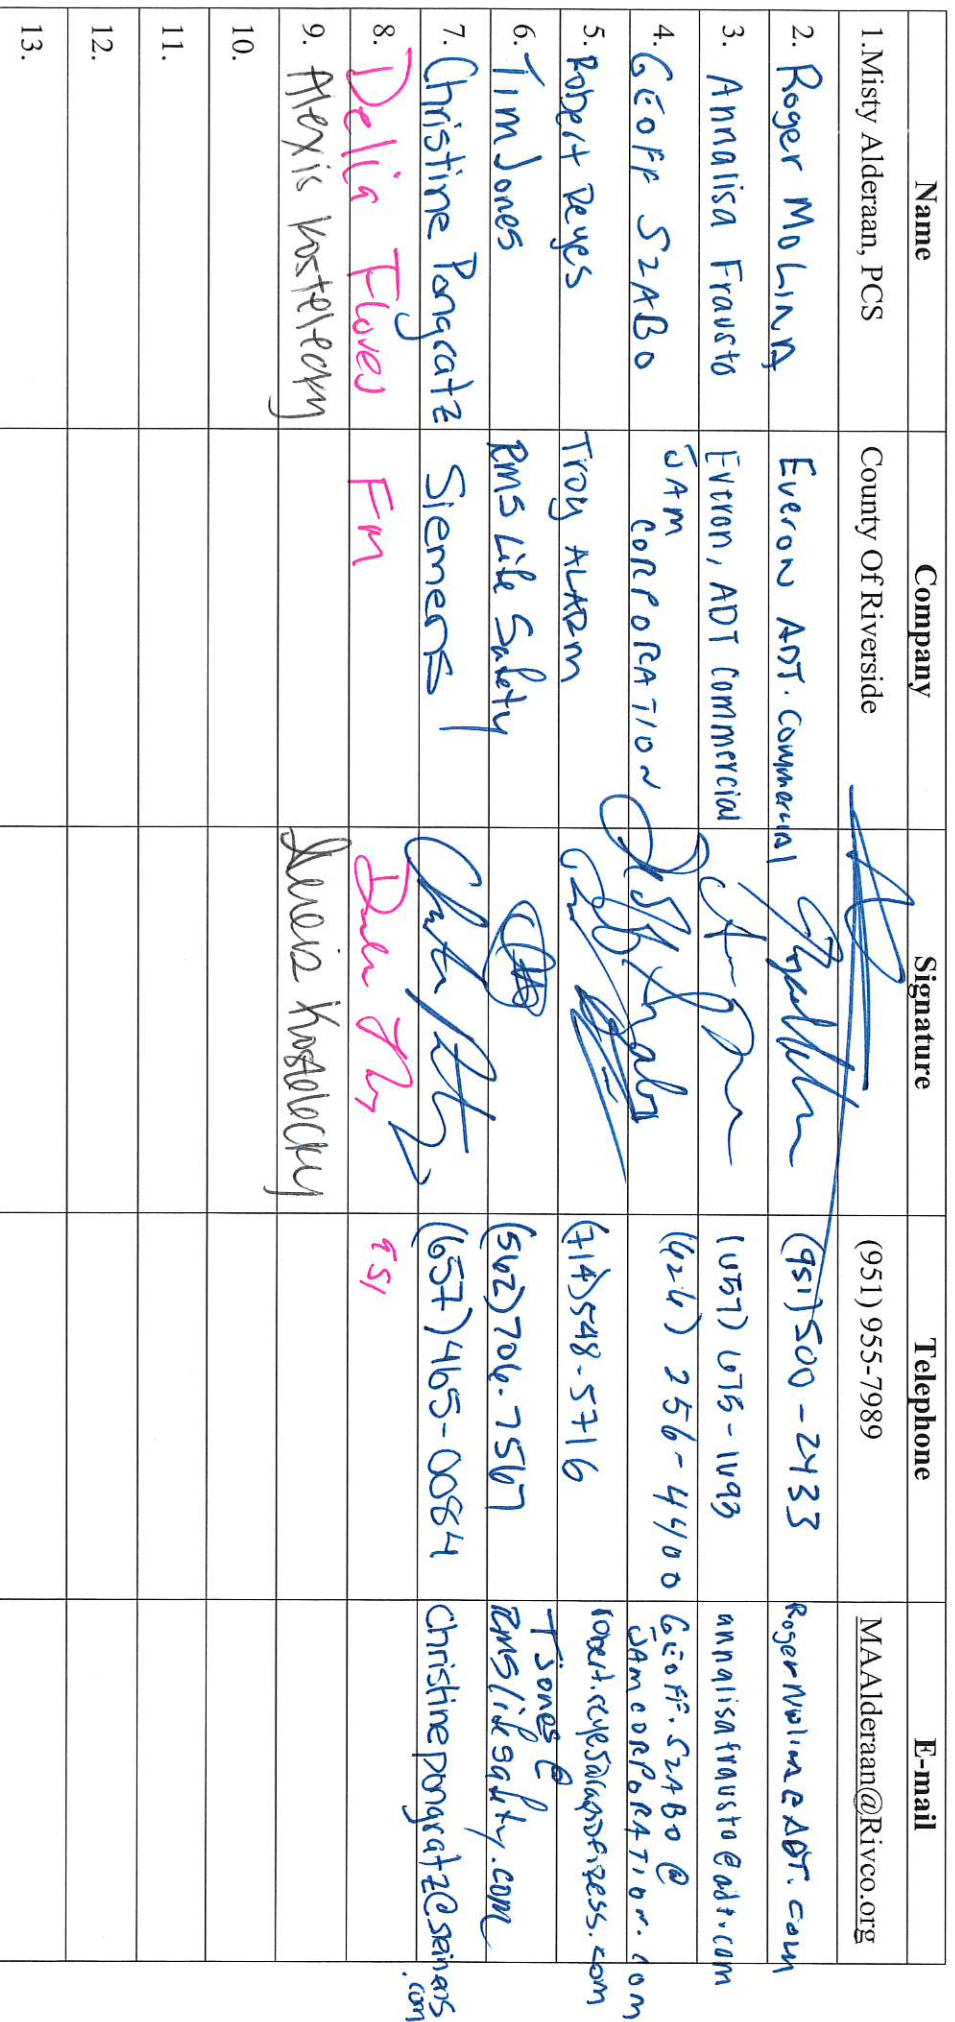 Name Company Signature Telephone E-mail
1.Misty Alderaan, PCS County Of Riverside (951) 955-7989 MAAlderaan@Rivco.org
2. Roger MoLINA Everon ADT. Commercial (951) 500-2433 RogerMolina@ADT.com
3. Annalisa Frausto Everon, ADT Commercial (657) 675-1693 annalisafrausto@adt.com
4. GEOFF SZABO JAM CORPORATION (626) 256-4400 GEOFF.SZABO@
JAMCORPORATION.COM
5. Robert Reyes Troy ALARM (714)548-5716
6. Tim Jones RMS Life Safety (562)706-7567 TJones@
RMSlifesafety.com
7. Christine Pongratz Siemens (657)465-0084 Christinepongratz@siemens
.com
8. Delia Flores FM 951
9. Alexis Kostelecky Alexis Kostelecky
10.
11.
12.
13.